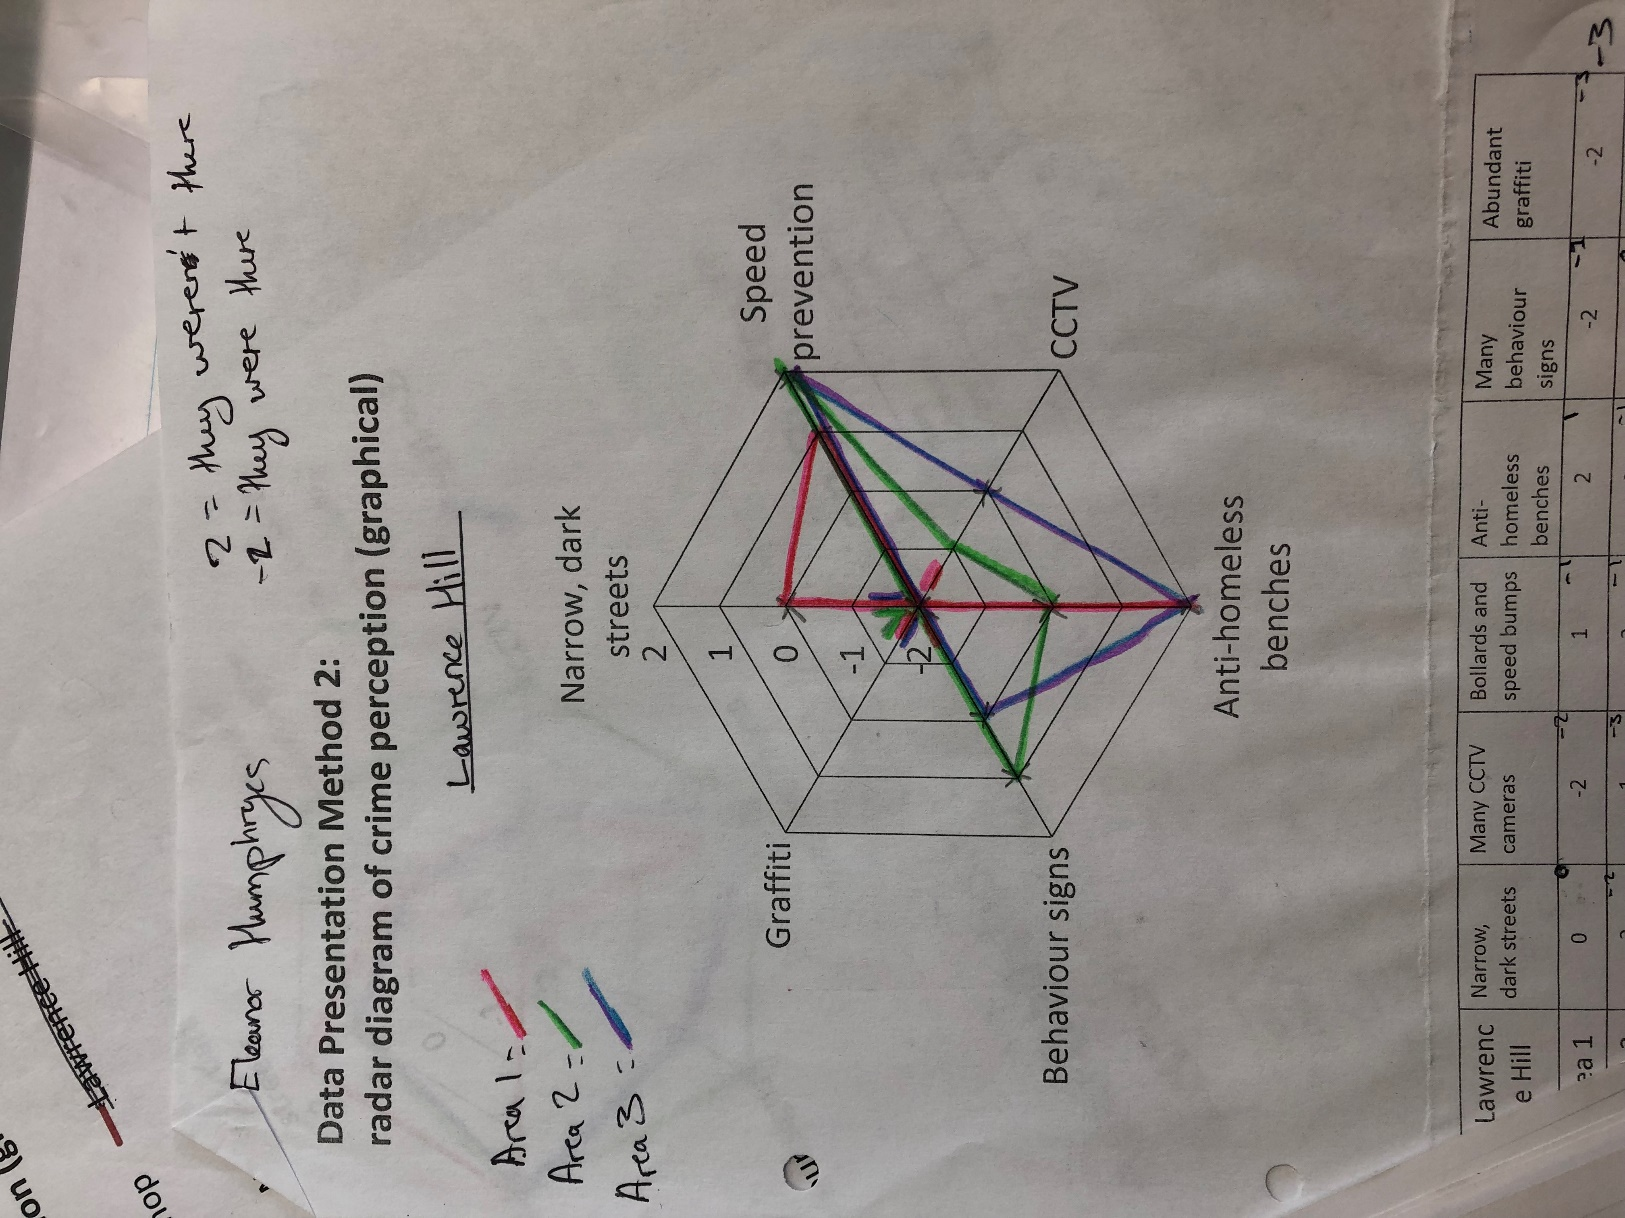 Eleanor Humphryes
2 = they weren't there
-2 = they were there
Data Presentation Method 2:
radar diagram of crime perception (graphical)
Lawrence Hill
Area 1 =
Area 2 =
Area 3 =
Narrow, dark
streets
Speed
prevention
CCTV
Anti-homeless
benches
Behaviour signs
Graffiti
2
1
0
-1
-2
Lawrenc
e Hill
Narrow,
dark streets
Many CCTV
cameras
Bollards and
speed bumps
Anti-
homeless
benches
Many
behaviour
signs
Abundant
graffiti
ea 1
0
0
-2
-2
1
-1
2
1
-2
-1
-2
-3
-3
-2
-3
Lawrence Hill
on (g
hop